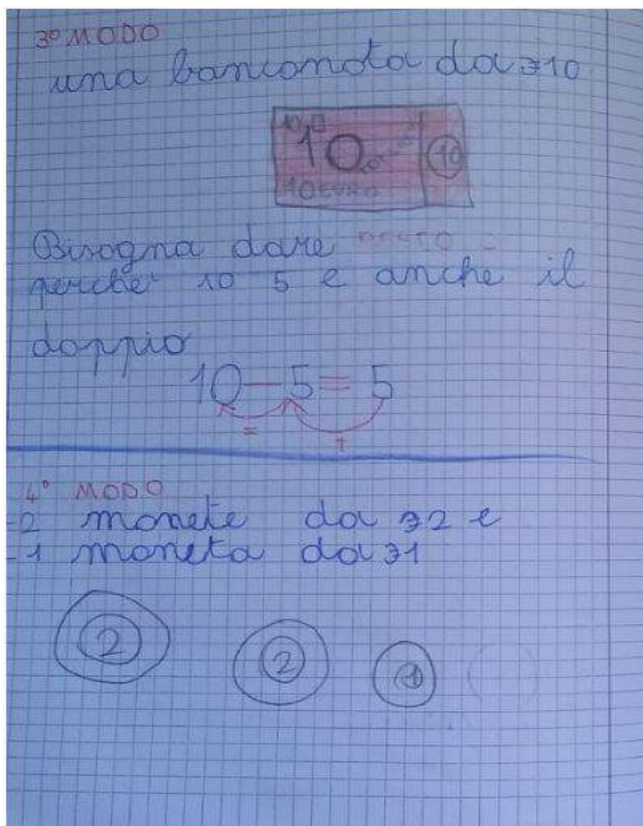 3° MODO
una banconota da €10
10
10
10 EURO
Bisogna dare resto
perché 10 5 e anche il
doppio
10 - 5 = 5
= +
4° MODO
-2 monete da €2 e
-1 moneta da €1
2 2 1